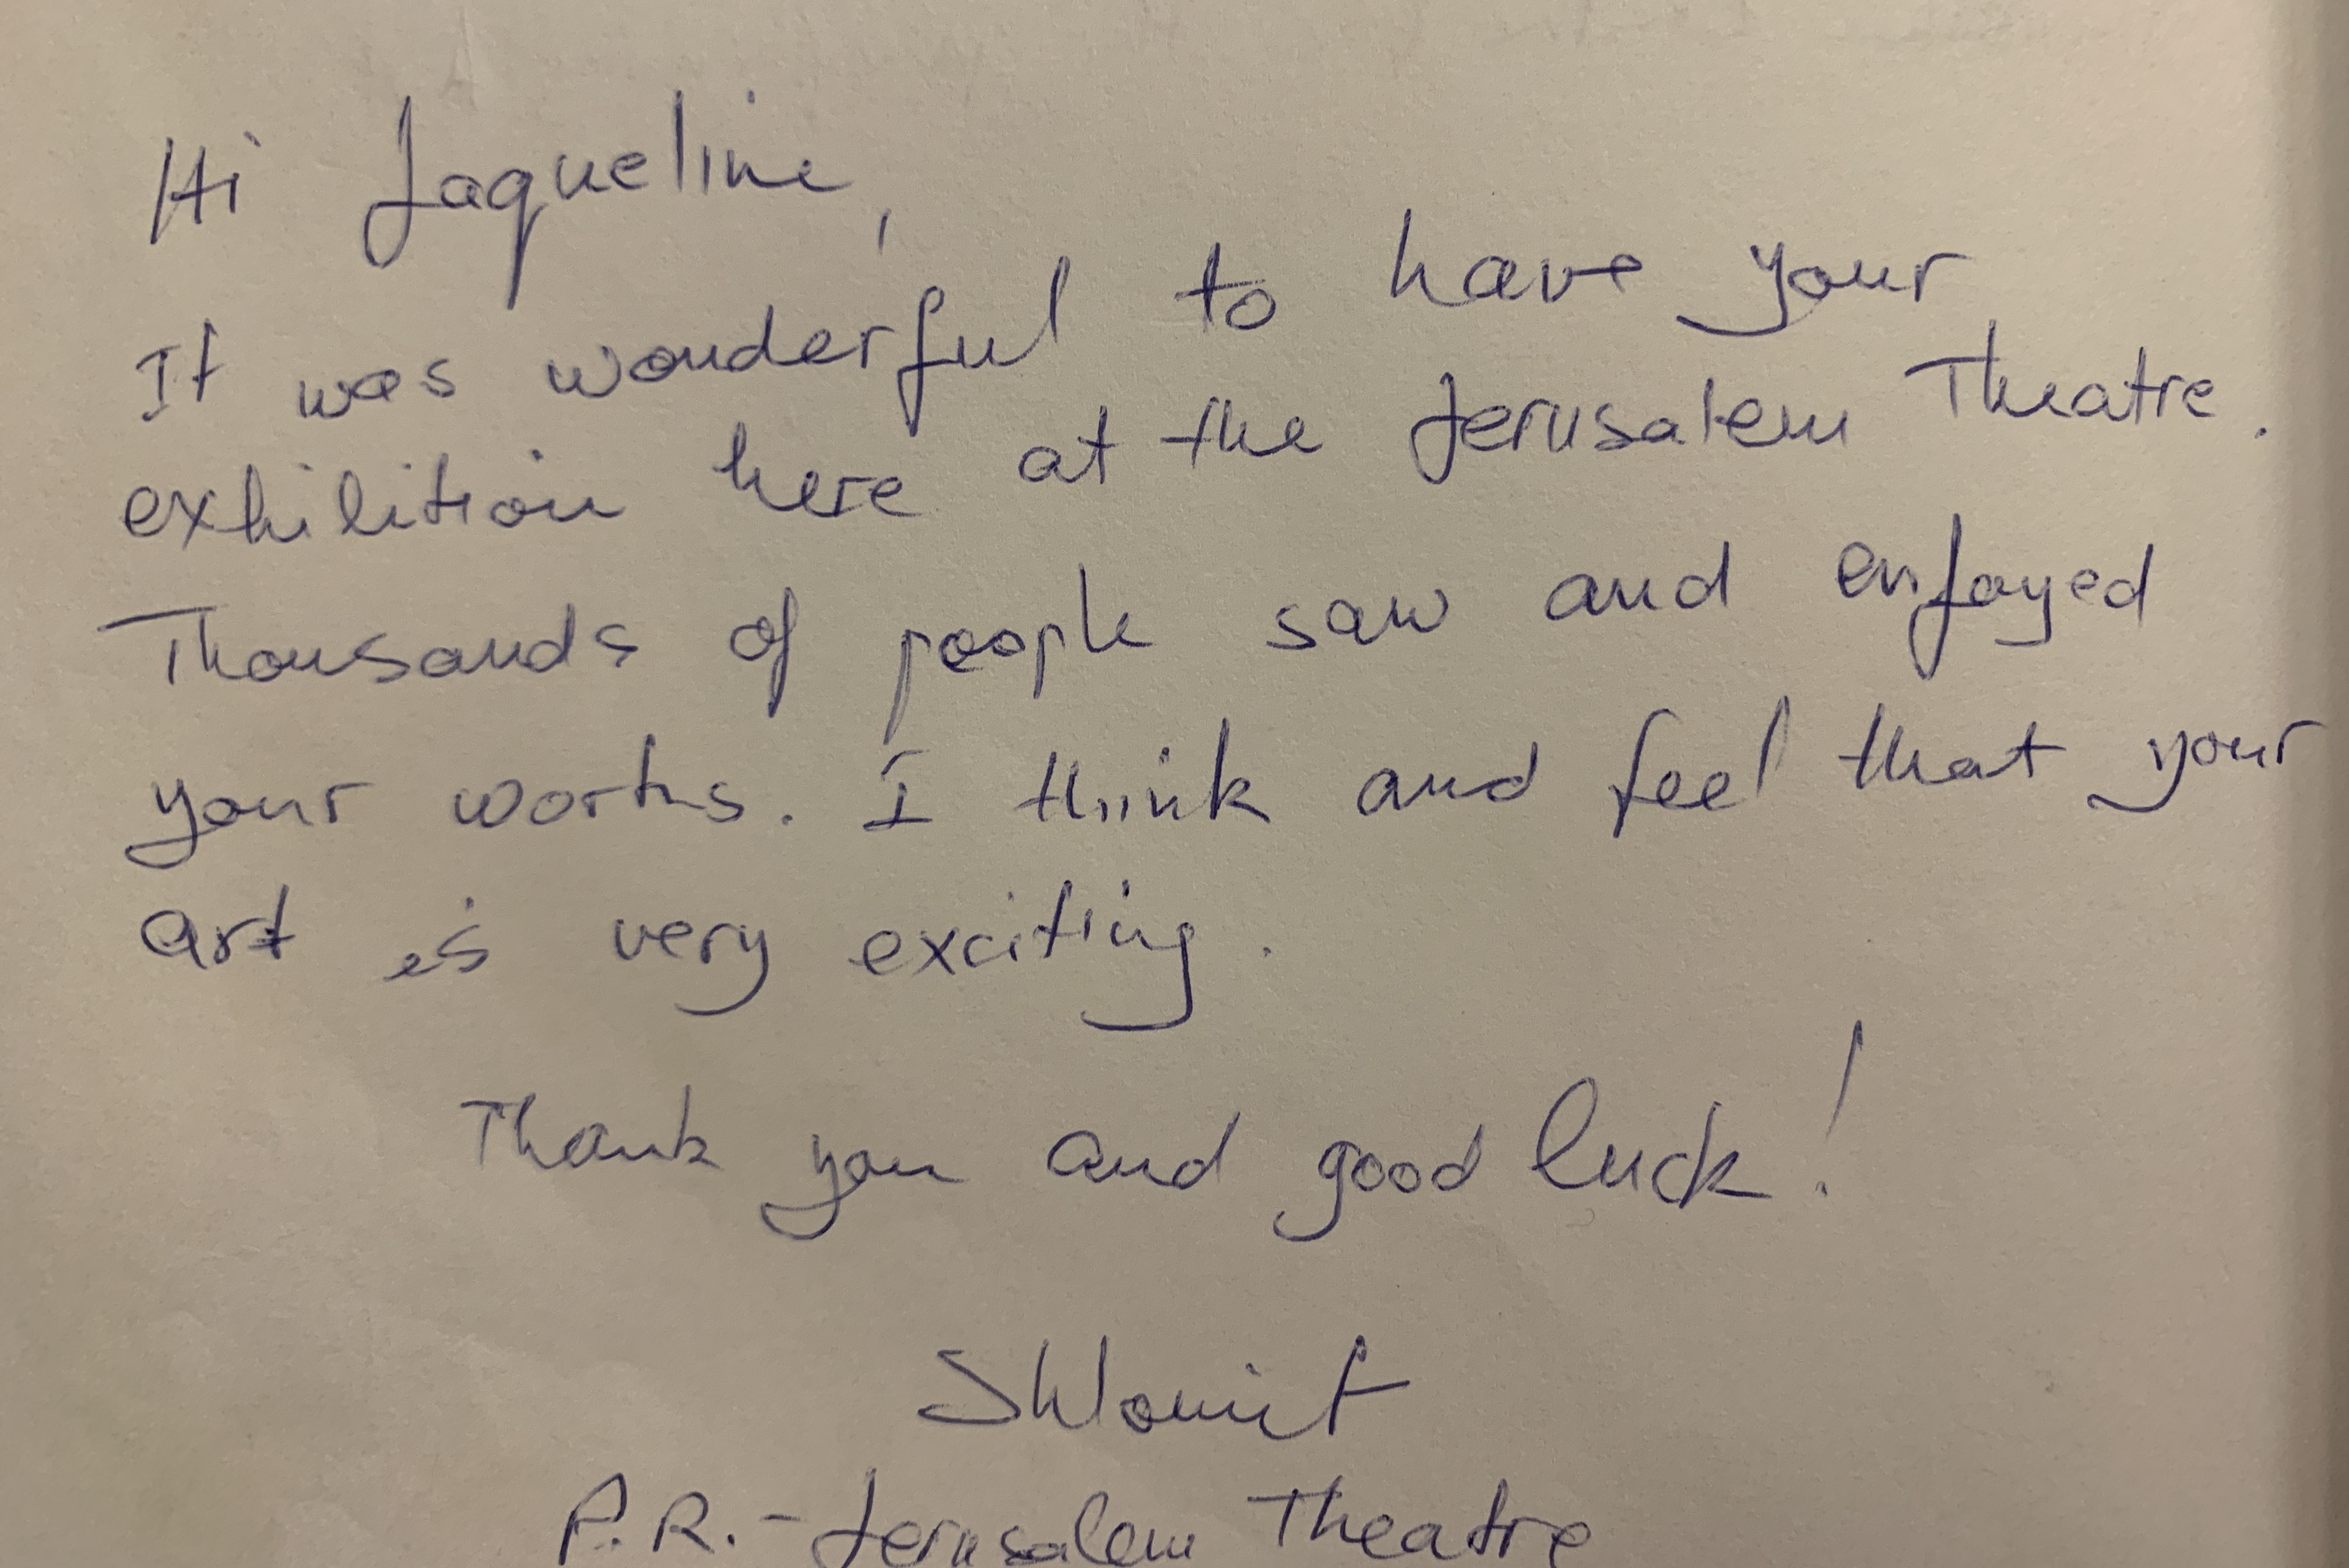 Hi Jaqueline,
It was wonderful to have your
exhibition here at the Jerusalem Theatre.
Thousands of people saw and enjoyed
your works. I think and feel that your
art is very exciting.
Thank you and good luck!
Shlomit
P.R. - Jerusalem Theatre